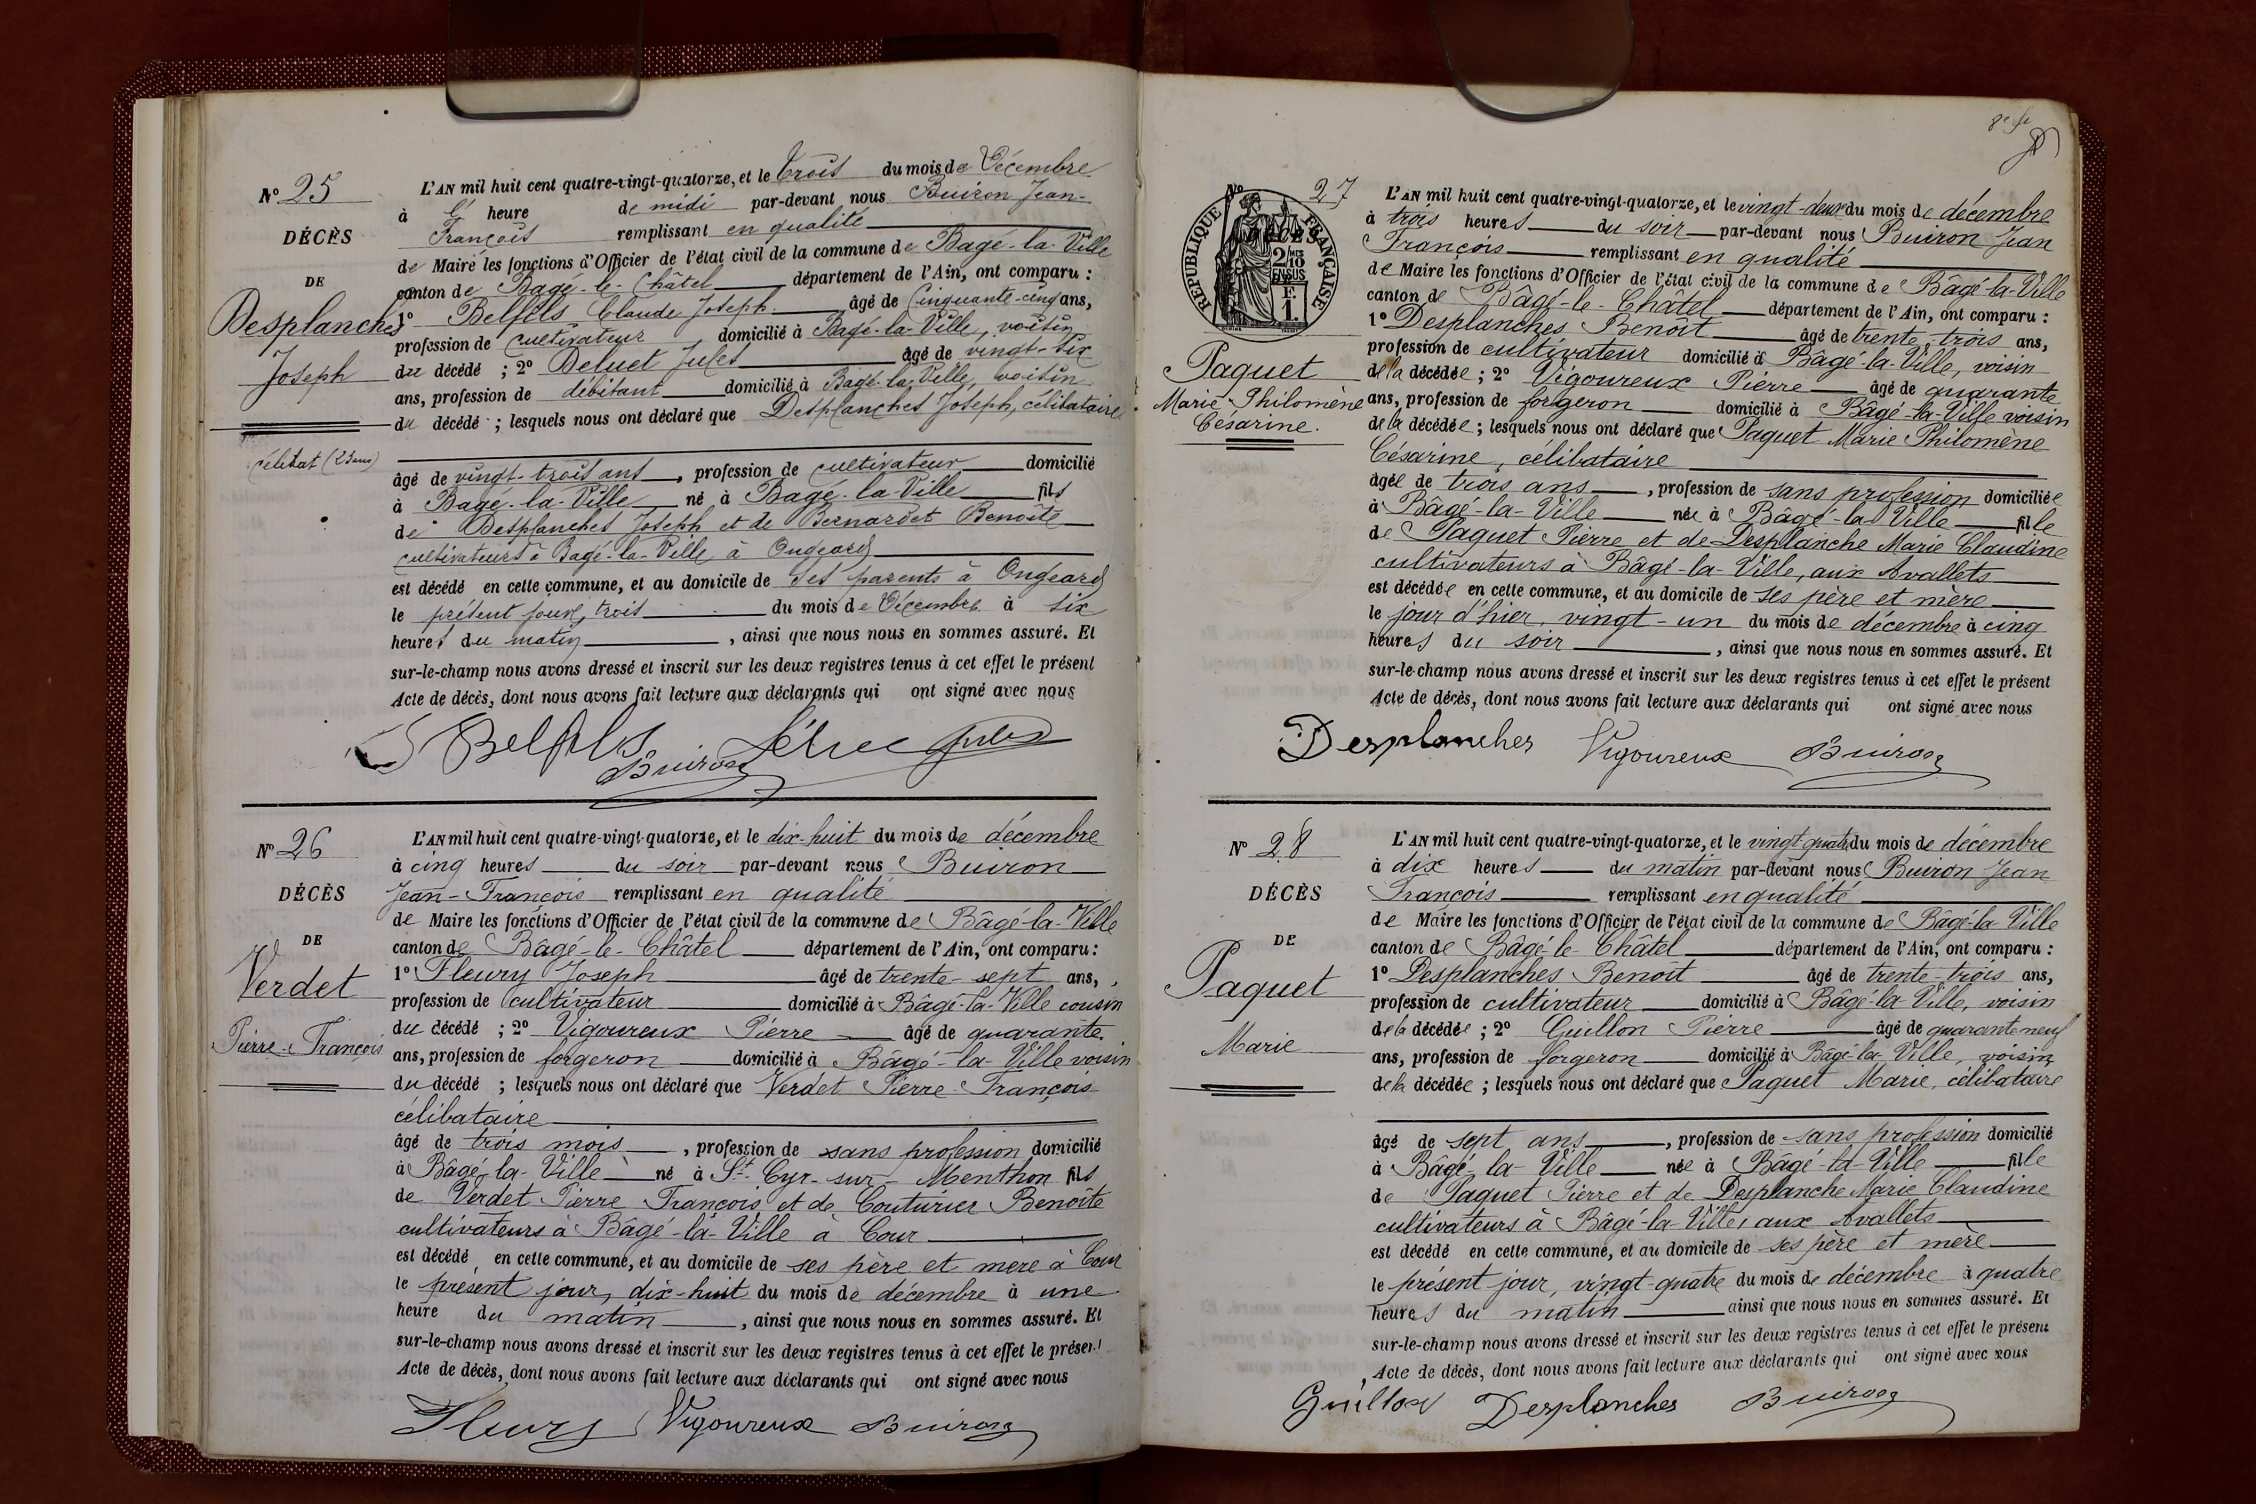 N° 25
DÉCÈS
DE
Desplanches
Joseph
célibat (23 ans)
L'AN mil huit cent quatre-vingt-quatorze, et le trois du mois de Décembre
à heure de midi par-devant nous Buiron Jean-
François remplissant en qualité
de Maire les fonctions d'Officier de l'état civil de la commune de Bagé-la-Ville
canton de Bagé-le-Châtel département de l'Ain, ont comparu :
1° Belfils Claude Joseph âgé de Cinquante-cinq ans,
profession de cultivateur domicilié à Bagé-la-Ville, voisin
du décédé ; 2° Deluet Jules âgé de vingt-six
ans, profession de débitant domicilié à Bagé-la-Ville, voisin
du décédé ; lesquels nous ont déclaré que Desplanches Joseph, célibataire
âgé de vingt-trois ans, profession de cultivateur domicilié
à Bagé-la-Ville né à Bagé-la-Ville fils
de Desplanches Joseph et de Bernardet Benoîte
cultivateurs à Bagé-la-Ville à Ongeard
est décédé en cette commune, et au domicile de ses parents à Ongeard
le présent jour, trois du mois de Décembre à six
heures du matin, ainsi que nous nous en sommes assuré. Et
sur-le-champ nous avons dressé et inscrit sur les deux registres tenus à cet effet le présent
Acte de décès, dont nous avons fait lecture aux déclarants qui ont signé avec nous
Belfils Buiron Jules
N° 26
DÉCÈS
DE
Verdet
Pierre-François
L'AN mil huit cent quatre-vingt-quatorze, et le dix-huit du mois de décembre
à cinq heures du soir par-devant nous Buiron
Jean-François remplissant en qualité
de Maire les fonctions d'Officier de l'état civil de la commune de Bâgé-la-Ville
canton de Bâgé-le-Châtel département de l'Ain, ont comparu :
1° Fleury Joseph âgé de trente-sept ans,
profession de cultivateur domicilié à Bâgé-la-Ville cousin
du décédé ; 2° Vigoureux Pierre âgé de quarante
ans, profession de forgeron domicilié à Bâgé-la-Ville voisin
du décédé ; lesquels nous ont déclaré que Verdet Pierre-François
célibataire
âgé de trois mois, profession de sans profession domicilié
à Bâgé-la-Ville né à St-Cyr-sur-Menthon fils
de Verdet Pierre François et de Couturier Benoîte
cultivateurs à Bâgé-la-Ville à Cour
est décédé en cette commune, et au domicile de ses père et mère à Cour
le présent jour, dix-huit du mois de décembre à une
heure du matin, ainsi que nous nous en sommes assuré. Et
sur-le-champ nous avons dressé et inscrit sur les deux registres tenus à cet effet le présent
Acte de décès, dont nous avons fait lecture aux déclarants qui ont signé avec nous
Fleury Vigoureux Buiron
N° 27
RÉPUBLIQUE FRANÇAISE
2/10
EN SUS
F. 1.
Paquet
Marie-Philomène
Césarine.
L'AN mil huit cent quatre-vingt-quatorze, et le vingt-deux du mois de décembre
à trois heures du soir par-devant nous Buiron Jean
François remplissant en qualité
de Maire les fonctions d'Officier de l'état civil de la commune de Bâgé-la-Ville
canton de Bâgé-le-Châtel département de l'Ain, ont comparu :
1° Desplanches Benoît âgé de trente-trois ans,
profession de cultivateur domicilié à Bâgé-la-Ville, voisin
de la décédée ; 2° Vigoureux Pierre âgé de quarante
ans, profession de forgeron domicilié à Bâgé-la-Ville voisin
de la décédée ; lesquels nous ont déclaré que Paquet Marie Philomène
Césarine, célibataire
âgée de trois ans, profession de sans profession domiciliée
à Bâgé-la-Ville née à Bâgé-la-Ville fille
de Paquet Pierre et de Desplanche Marie Claudine
cultivateurs à Bâgé-la-Ville, aux Avallets
est décédée en cette commune, et au domicile de ses père et mère
le jour d'hier, vingt-un du mois de décembre à cinq
heures du soir, ainsi que nous nous en sommes assuré. Et
sur-le-champ nous avons dressé et inscrit sur les deux registres tenus à cet effet le présent
Acte de décès, dont nous avons fait lecture aux déclarants qui ont signé avec nous
Desplanches Vigoureux Buiron
N° 28
DÉCÈS
DE
Paquet
Marie
L'AN mil huit cent quatre-vingt-quatorze, et le vingt quatre du mois de décembre
à dix heures du matin par-devant nous Buiron Jean
François remplissant en qualité
de Maire les fonctions d'Officier de l'état civil de la commune de Bâgé-la-Ville
canton de Bâgé-le-Châtel département de l'Ain, ont comparu :
1° Desplanches Benoît âgé de trente-trois ans,
profession de cultivateur domicilié à Bâgé-la-Ville, voisin
de la décédée ; 2° Guillon Pierre âgé de quarante neuf
ans, profession de forgeron domicilié à Bâgé-la-Ville, voisin
de la décédée ; lesquels nous ont déclaré que Paquet Marie, célibataire
âgé de sept ans, profession de sans profession domicilié
à Bâgé-la-Ville née à Bâgé-la-Ville fille
de Paquet Pierre et de Desplanche Marie Claudine
cultivateurs à Bâgé-la-Ville, aux Avallets
est décédé en cette commune, et au domicile de ses père et mère
le présent jour, vingt-quatre du mois de décembre à quatre
heures du matin ainsi que nous nous en sommes assuré. Et
sur-le-champ nous avons dressé et inscrit sur les deux registres tenus à cet effet le présent
Acte de décès, dont nous avons fait lecture aux déclarants qui ont signé avec nous
Guillon Desplanches Buiron